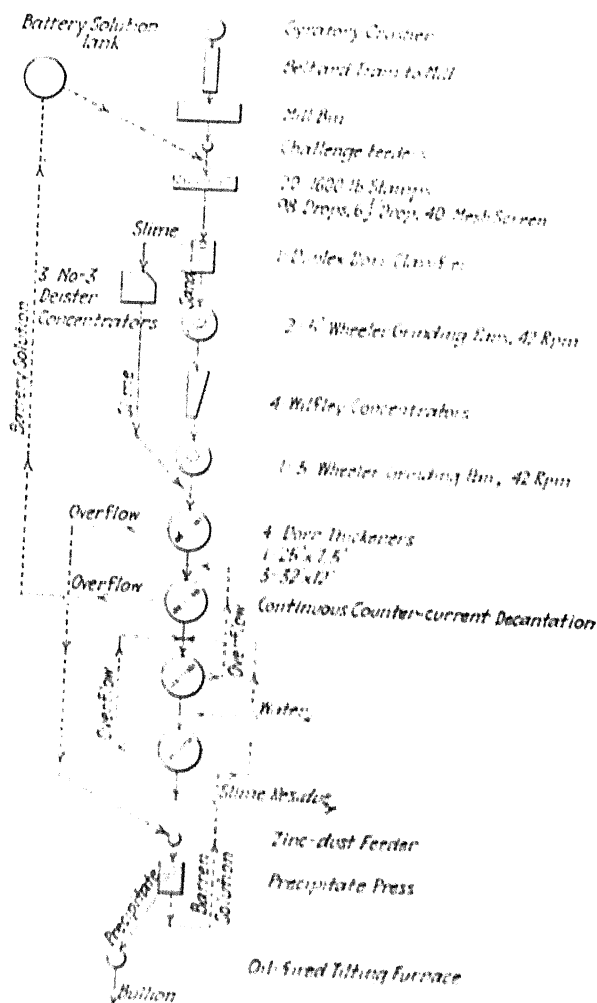 Battery Solution
Tank
Gyratory Crusher
Belt and Tram to Mill
Mill Bin
Challenge Feeders
20-1600 lb Stamps
98 Drops, 6½" Drop, 40 Mesh Screen
Slime
1-Duplex Dorr Classifier
3 No-3
Deister
Concentrators
Sand
Wheeler Grinding Pans, 42 Rpm
Battery Solution
Slime
4 Wilfley Concentrators
Wheeler Grinding Pan, 42 Rpm
Overflow
4 Dorr Thickeners
Overflow
Continuous Counter-current Decantation
Overflow
Overflow
Water
Slime Residue
Zinc-dust Feeder
Precipitate Press
Precipitate
Barren
Solution
Oil-fired Tilting Furnace
Bullion